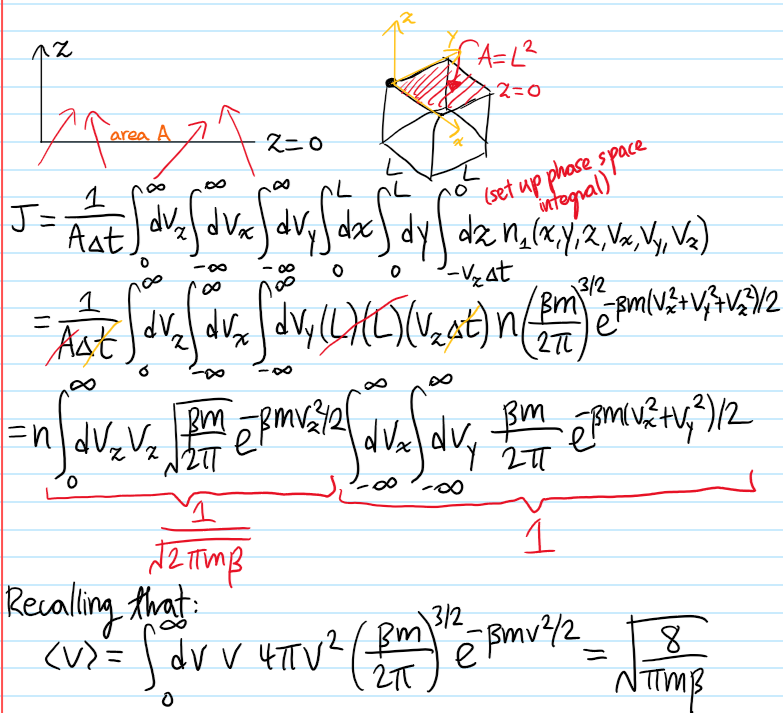 z
area A
z=0
z
y
A=L²
z=0
x
L
L
(set up phase space
integral)
J = 1/(AΔt) ∫₀^∞ dv_z ∫_{-∞}^∞ dv_x ∫_{-∞}^∞ dv_y ∫₀^L dx ∫₀^L dy ∫_{-v_zΔt}^0 dz n₁(x,y,z,v_x,v_y,v_z)
= 1/(AΔt) ∫₀^∞ dv_z ∫_{-∞}^∞ dv_x ∫_{-∞}^∞ dv_y (L)(L)(v_zΔt) n (βm/2π)^{3/2} e^{-βm(v_x²+v_y²+v_z²)/2}
= n ∫₀^∞ dv_z v_z √(βm/2π) e^{-βmv_z²/2} ∫_{-∞}^∞ dv_x ∫_{-∞}^∞ dv_y βm/2π e^{-βm(v_x²+v_y²)/2}
1/√(2πmβ)
1
Recalling that:
⟨v⟩ = ∫₀^∞ dv v 4πv² (βm/2π)^{3/2} e^{-βmv²/2} = √(8/(πmβ))